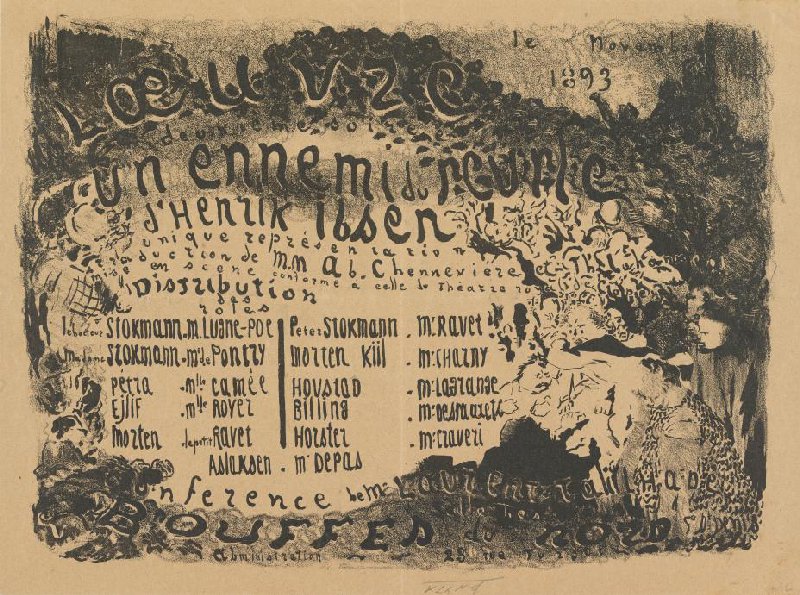 le Novemb
1893
L'ŒUVRE
un ennemi du peuple
d'Henrik Ibsen
unique représentation
traduction de M.M Ad. Chennevière et
mise en scène conforme à celle du Théâtre
Distribution
des
rôles
Stokmann . M. Lugné-Poe
Madame Stokmann . Mme de Pontry
Pétra . Mlle Camée
Ejlif . Mlle Royer
Morten . la petite Ravet
Aslaksen . Mr Depas
Peter Stokmann . Mr Ravet
Morten Kiil . Mr Charny
Hovstad . Mr Lagrange
Billing . Mr Desmarets
Horster . Mr Craveri
Conférence de Mr Laurent Tailhade
Bouffes du Nord
administration 23 rue